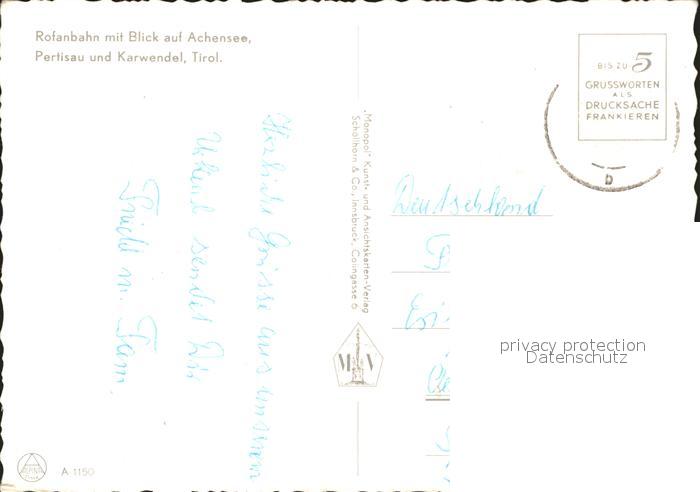 Rofanbahn mit Blick auf Achensee,
Pertisau und Karwendel, Tirol.
BIS ZU 5
GRUSSWORTEN
ALS
DRUCKSACHE
FRANKIEREN
b
"Monopol" Kunst- und Ansichtskarten-Verlag
Schöllhorn & Co., Innsbruck, Colingasse 6
M V
Herzliche Grüsse aus unserem
Urlaub sendet Dir
Fam.
Deutschland
privacy protection
Datenschutz
A 1150